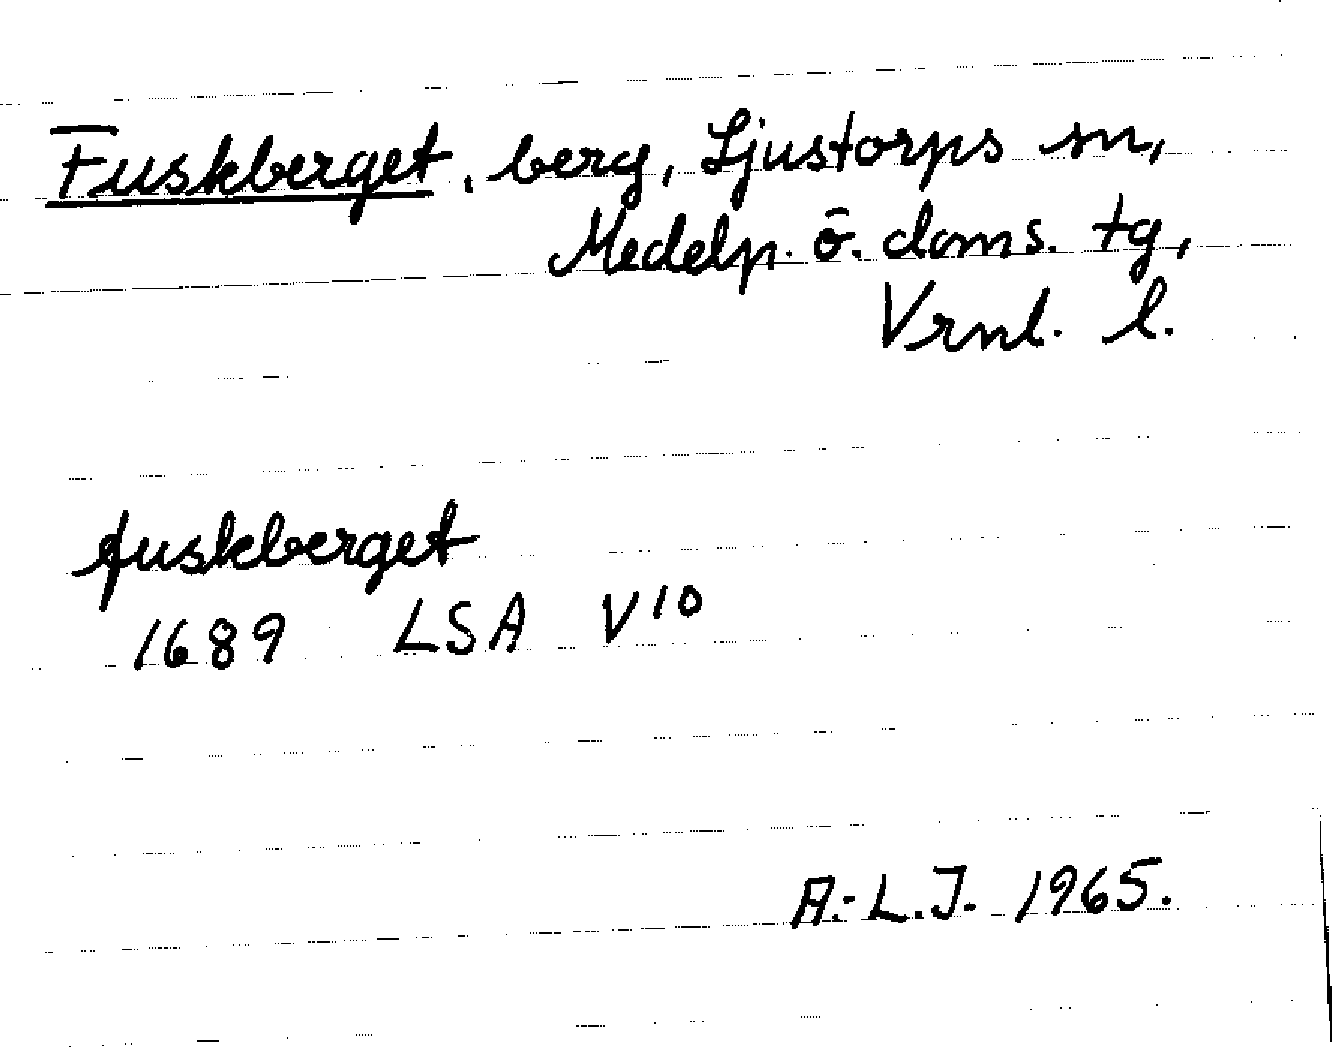 Fuskberget, berg, Ljustorps sn,
Medelp. ö. doms. tg,
Vrnl. l.
fuskberget
1689 LSA V10
A.-L.J. 1965.